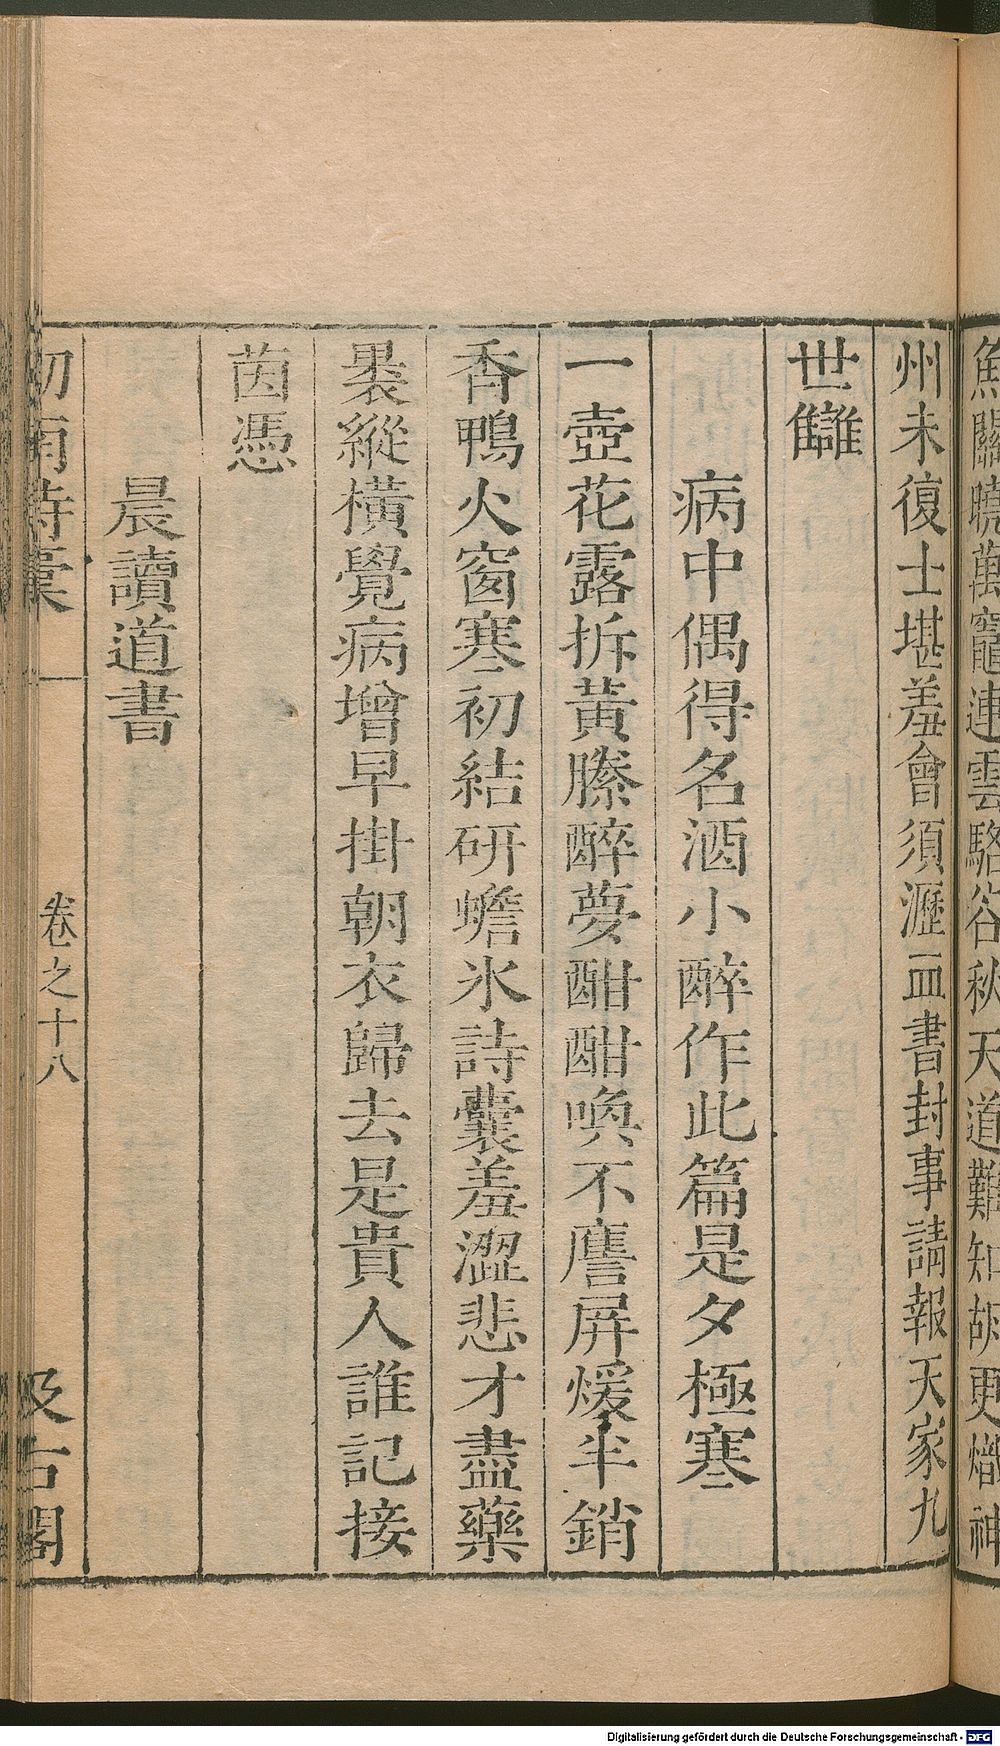 魚關曉萬竈連雲駱谷秋天道難知胡更熾神
州未復士堪羞會須瀝血書封事請報天家九
世讎
病中偶得名酒小醉作此篇是夕極寒
一壺花露拆黃縢醉夢酣酣喚不譍屏煖半銷
香鴨火窗寒初結研蟾氷詩囊羞澀悲才盡藥
褁縱橫覺病增早掛朝衣歸去是貴人誰記接
茵憑
晨讀道書
劍南詩稾 卷之十八 汲古閣
Digitalisierung gefördert durch die Deutsche Forschungsgemeinschaft - DFG